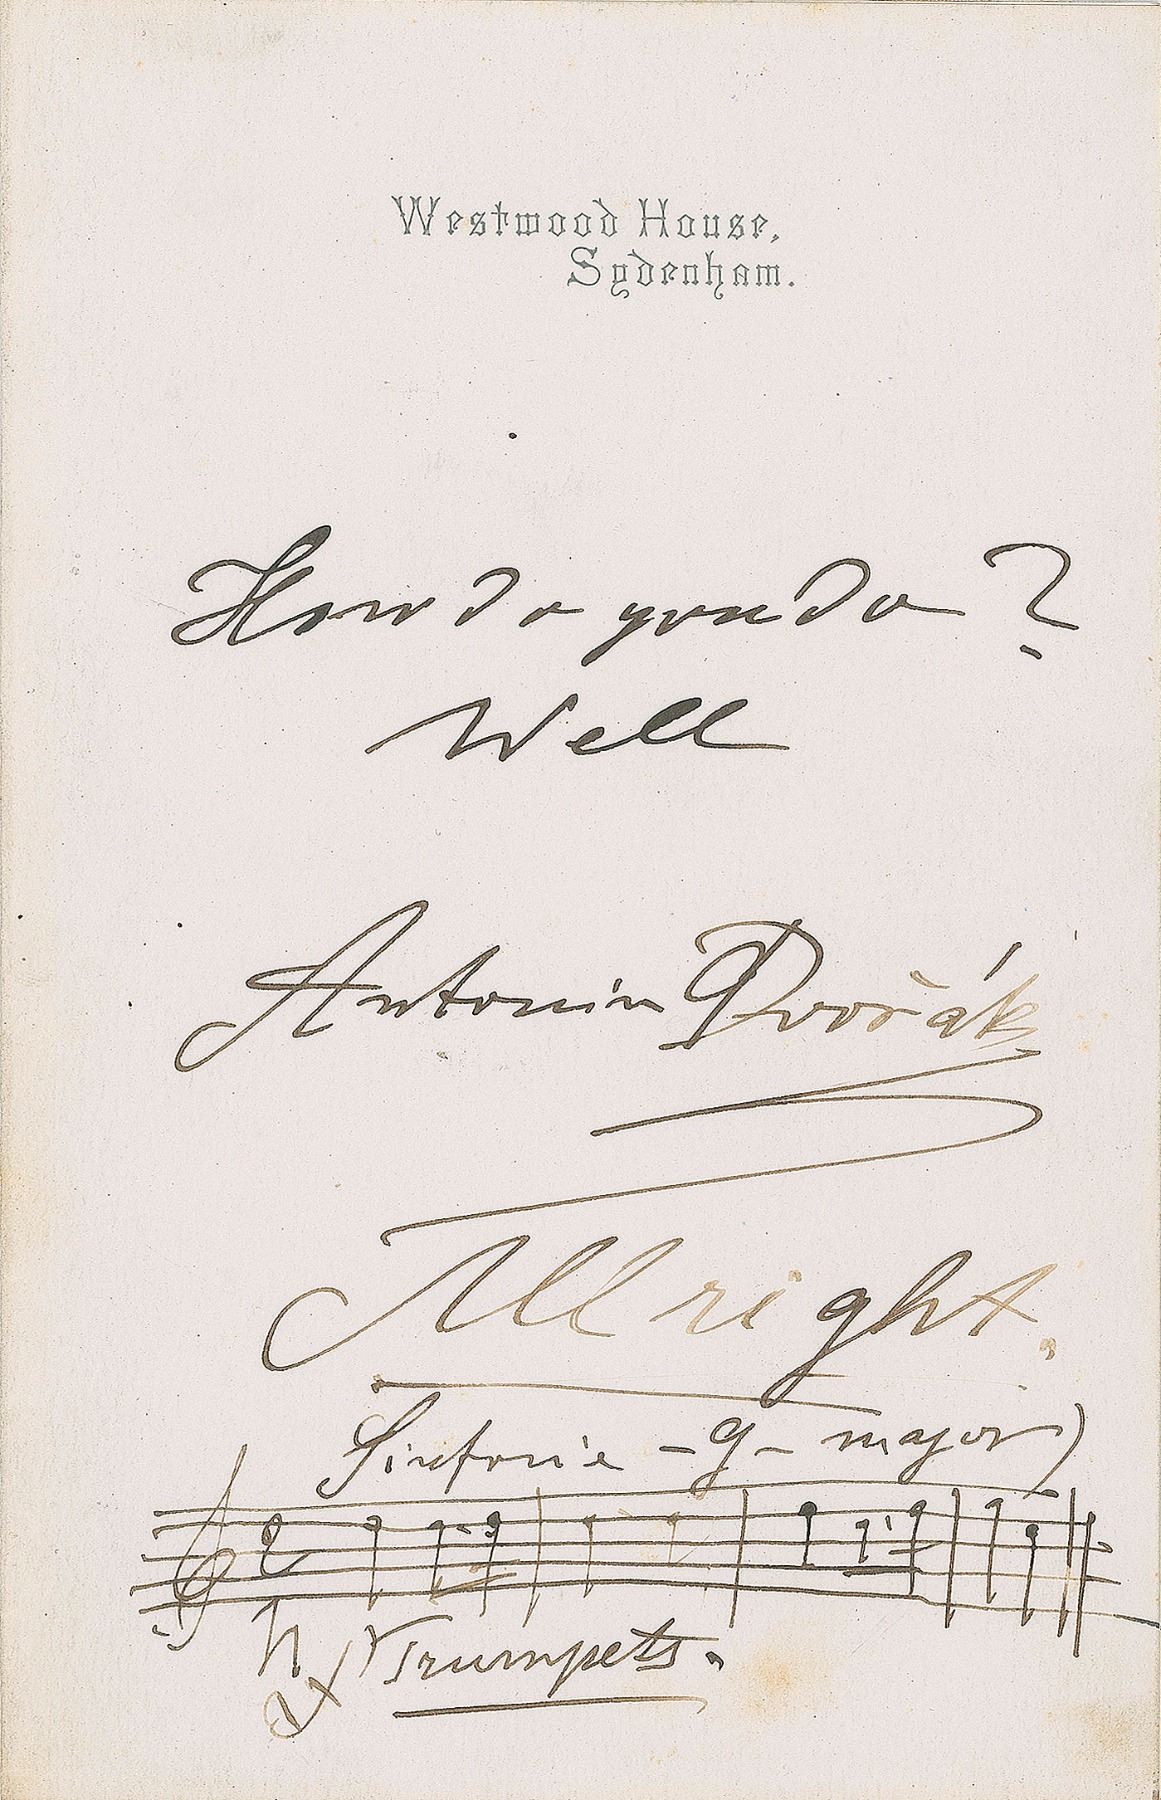 Westwood House,
Sydenham.
How do you do?
Well
Antonín Dvořák
All right.
Sinfonie - G - major)
Trumpets.